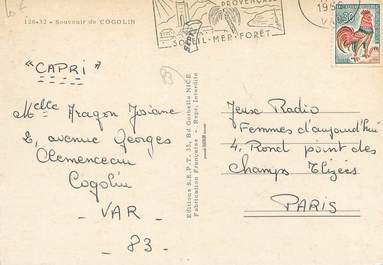 126-32 - Souvenir de COGOLIN
PROVENÇALE
SOLEIL-MER-FORÊT
0,30
83
"CAPRI"
Melle Aragon Josiane
2, avenue Georges
Clemenceau
Cogolin
- VAR -
- 83 -
Editions S.E.P.T. 33, Bd Gorbella NICE
Fabrication Française - Repr. Interdite
Jeux Radio
Femmes d'aujourd'hui
4, Rond point des
Champs Elysées
PARIS